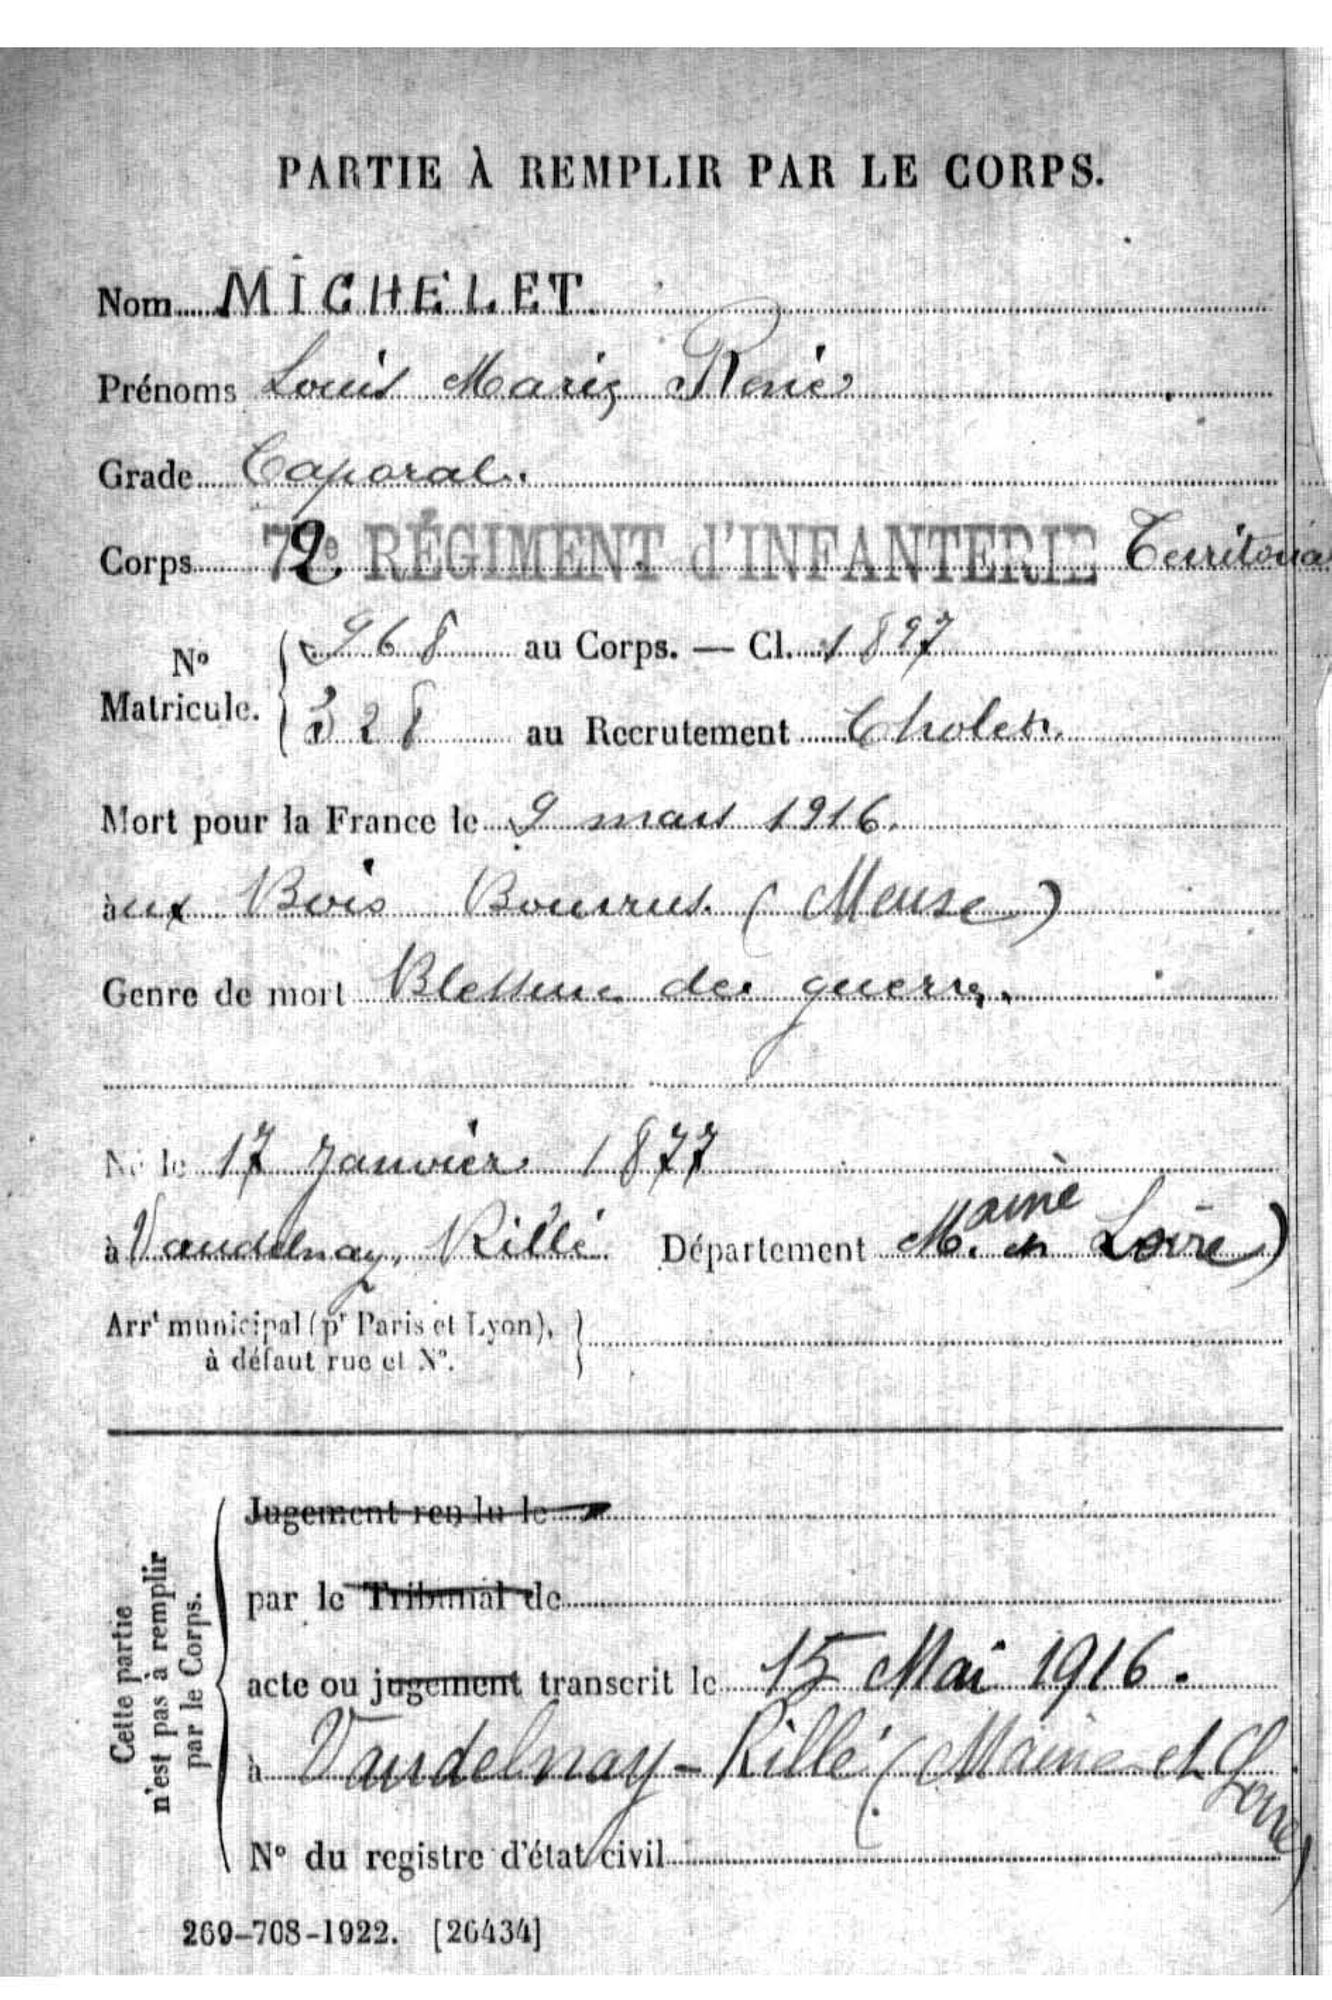 PARTIE À REMPLIR PAR LE CORPS.
Nom MICHELET
Prénoms Louis Marie René
Grade Caporal.
Corps 72e RÉGIMENT d'INFANTERIE Territoria
No Matricule. 968 au Corps. — Cl. 1897
328 au Recrutement Cholet
Mort pour la France le 9 mars 1916.
aux Bois Bourrus. (Meuse)
Genre de mort Blessure de guerre.
Né le 17 Janvier 1877
à Vaudelnay, Rillé. Département M. aine et Loire)
Arrt municipal (pr Paris et Lyon),
à défaut rue et No.
Cette partie
n'est pas à remplir
par le Corps.
Jugement rendu le
par le Tribunal de
acte ou jugement transcrit le 15 Mai 1916.
à Vaudelnay-Rillé (Maine et Loire)
No du registre d'état civil
269-708-1922. [26434]